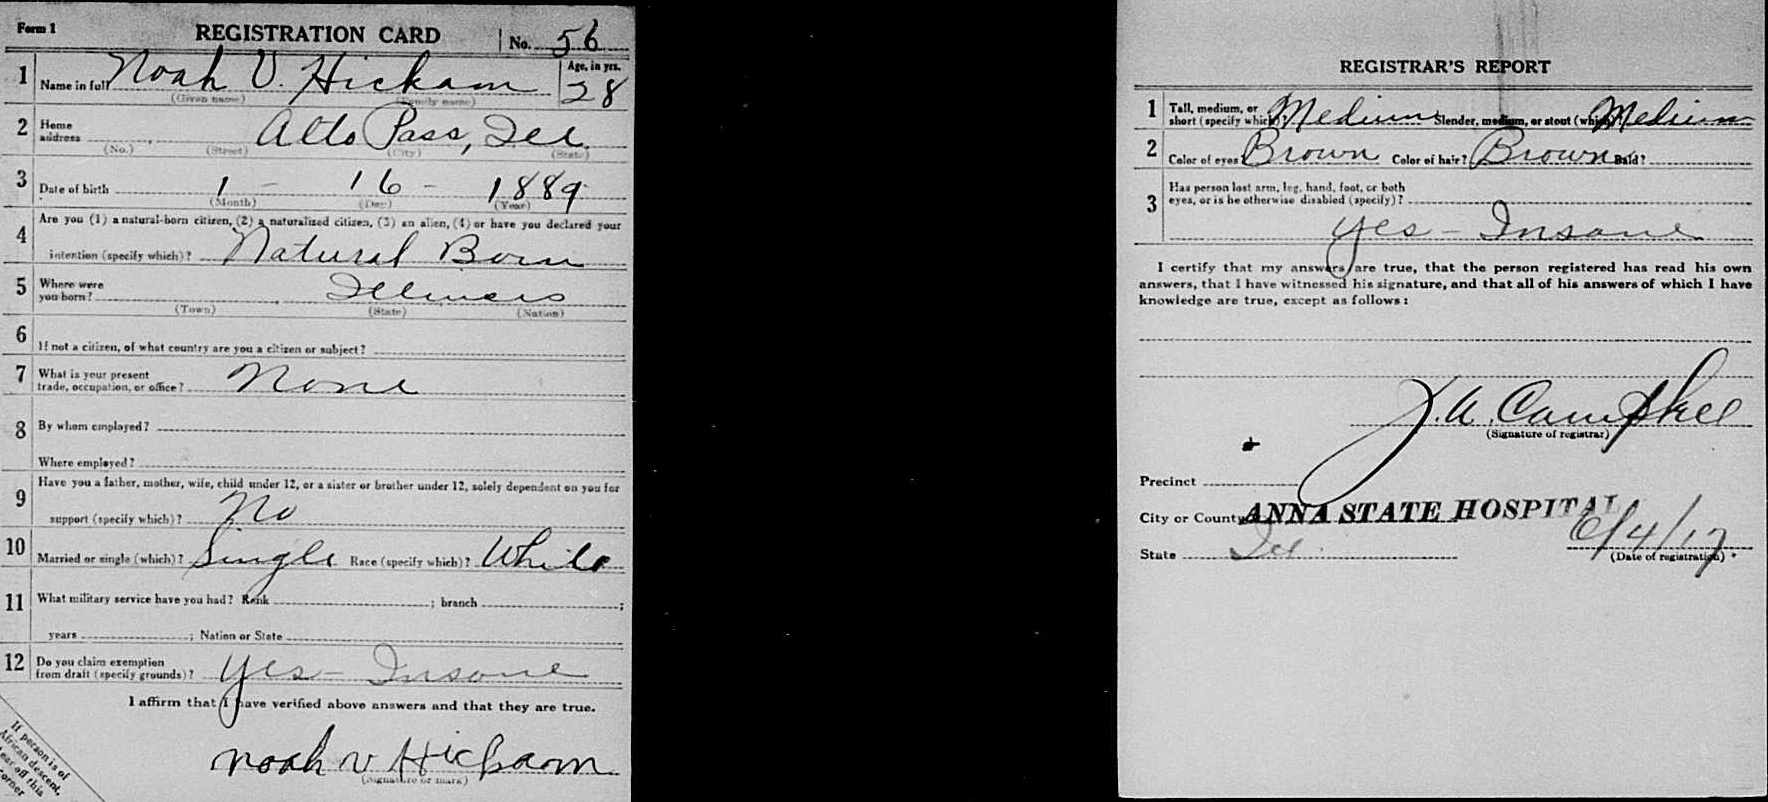 Form 1
REGISTRATION CARD No. 56
1 Name in full Noah V. Hickam Age, in yrs. 28
(Given name) (Family name)
2 Home address Alto Pass, Ill.
(No.) (Street) (City) (State)
3 Date of birth 1 - 16 - 1889
(Month) (Day) (Year)
4 Are you (1) a natural-born citizen, (2) a naturalized citizen, (3) an alien, (4) or have you declared your
intention (specify which)? Natural Born
5 Where were you born? Illinois
(Town) (State) (Nation)
6 If not a citizen, of what country are you a citizen or subject?
7 What is your present trade, occupation, or office? None
8 By whom employed?
Where employed?
9 Have you a father, mother, wife, child under 12, or a sister or brother under 12, solely dependent on you for
support (specify which)? No
10 Married or single (which)? Single Race (specify which)? White
11 What military service have you had? Rank ; branch ;
years ; Nation or State
12 Do you claim exemption from draft (specify grounds)? Yes - Insane
I affirm that I have verified above answers and that they are true.
Noah V Hickam
(Signature or mark)
If person is of
African descent,
tear off this
corner
REGISTRAR'S REPORT
1 Tall, medium, or short (specify which)? Medium Slender, medium, or stout (which)? Medium
2 Color of eyes Brown Color of hair? Brown Bald?
3 Has person lost arm, leg, hand, foot, or both
eyes, or is he otherwise disabled (specify)?
Yes - Insane
I certify that my answers are true, that the person registered has read his own
answers, that I have witnessed his signature, and that all of his answers of which I have
knowledge are true, except as follows:
J. A. Campbell
(Signature of registrar)
Precinct
City or County ANNA STATE HOSPITAL
State Ill. 6/4/17.
(Date of registration)